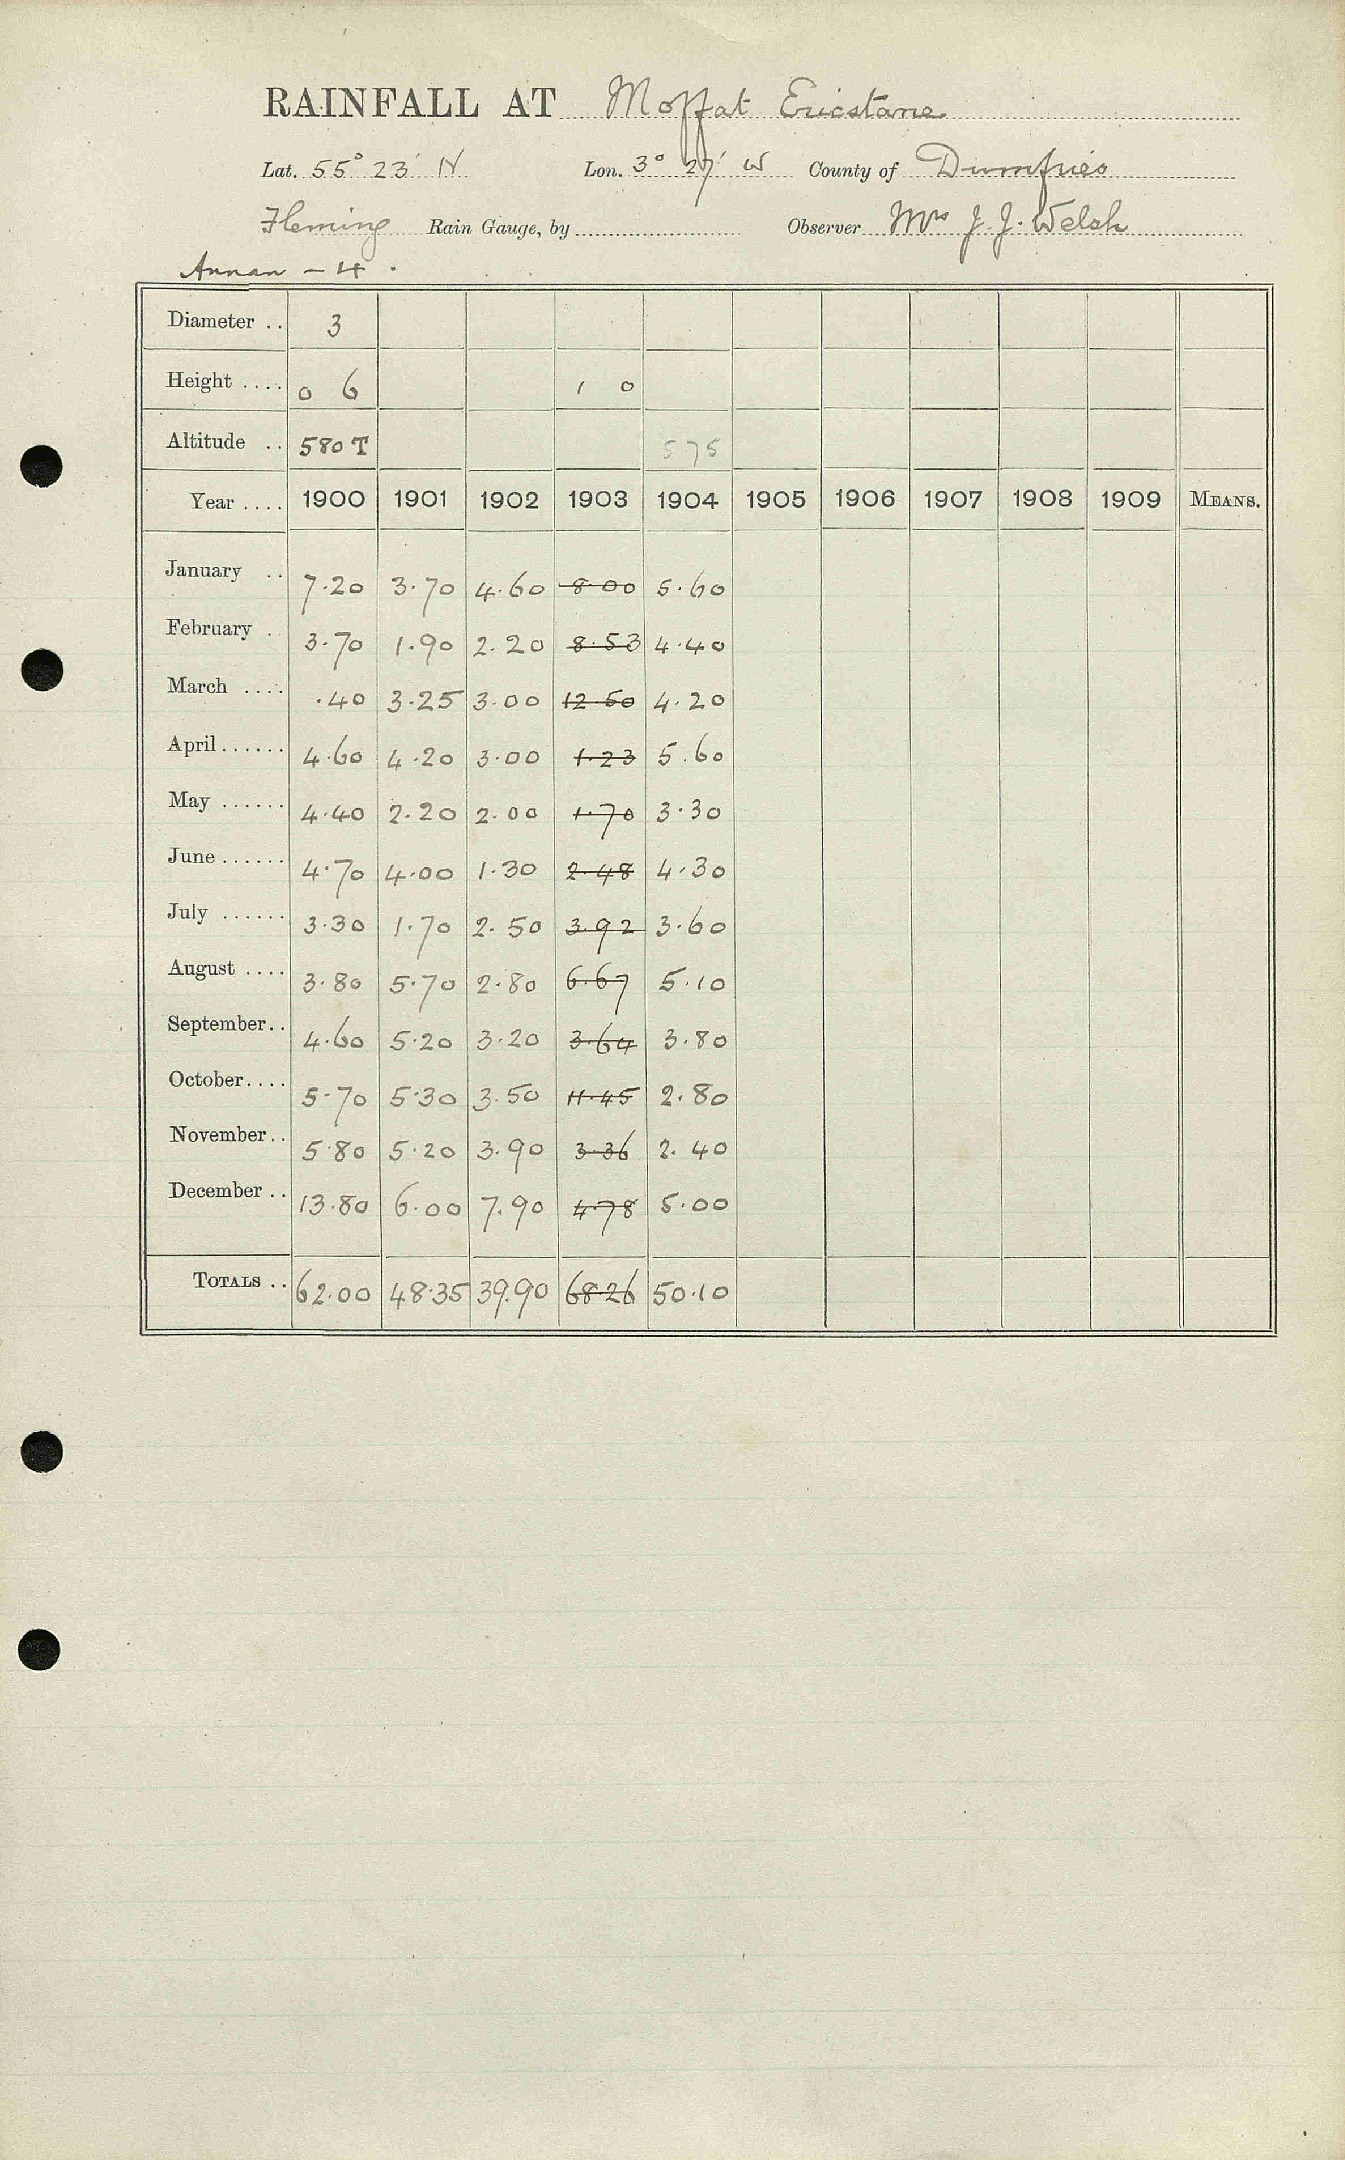 RAINFALL AT Moffat Ericstane
Lat. 55° 23' N Lon. 3° 27' W County of Dumfries
Fleming Rain Gauge, by Observer Mrs J. J. Welsh
Annan - 4.
Diameter .. 3
Height .... 0 6 1 0
Altitude .. 580 T 575
Year .... 1900 1901 1902 1903 1904 1905 1906 1907 1908 1909 MEANS.
January .. 7.20 3.70 4.60 8.00 5.60
February . 3.70 1.90 2.20 8.53 4.40
March .... .40 3.25 3.00 12.50 4.20
April...... 4.60 4.20 3.00 1.23 5.60
May ...... 4.40 2.20 2.00 1.70 3.30
June...... 4.70 4.00 1.30 2.48 4.30
July ...... 3.30 1.70 2.50 3.92 3.60
August .... 3.80 5.70 2.80 6.67 5.10
September.. 4.60 5.20 3.20 3.64 3.80
October.... 5.70 5.30 3.50 11.45 2.80
November.. 5.80 5.20 3.90 3.36 2.40
December .. 13.80 6.00 7.90 4.78 5.00
TOTALS .. 62.00 48.35 39.90 68.26 50.10